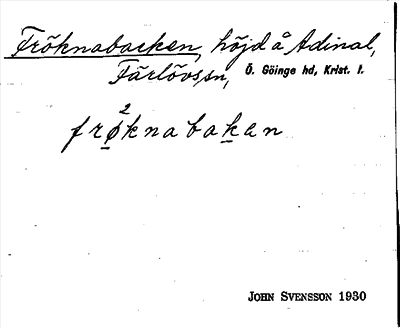 Fröknabacken, höjd å Adinal,
Färlövs sn, Ö. Göinge hd, Krist. l.
2
frøknabakan
JOHN SVENSSON 1930